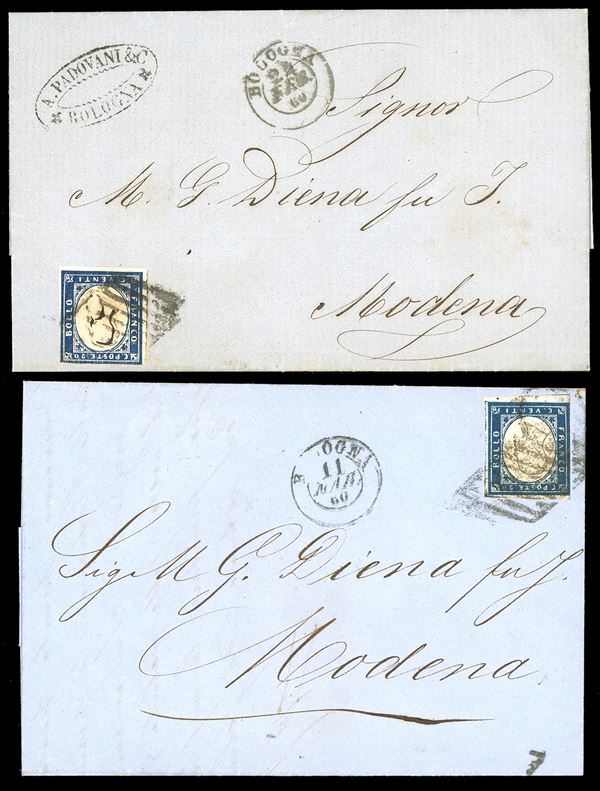 A. PADOVANI & C.
BOLOGNA
BOLOGNA
MAR
60
Signor
M. G. Diena fu J.
Modena
C. VENTI
BOLLO
FRANCO
C. POSTE 20
C. VENTI
BOLLO
FRANCO
C. POSTE 20
OGNA
11
MAR
60
Sig M G. Diena fu J.
Modena